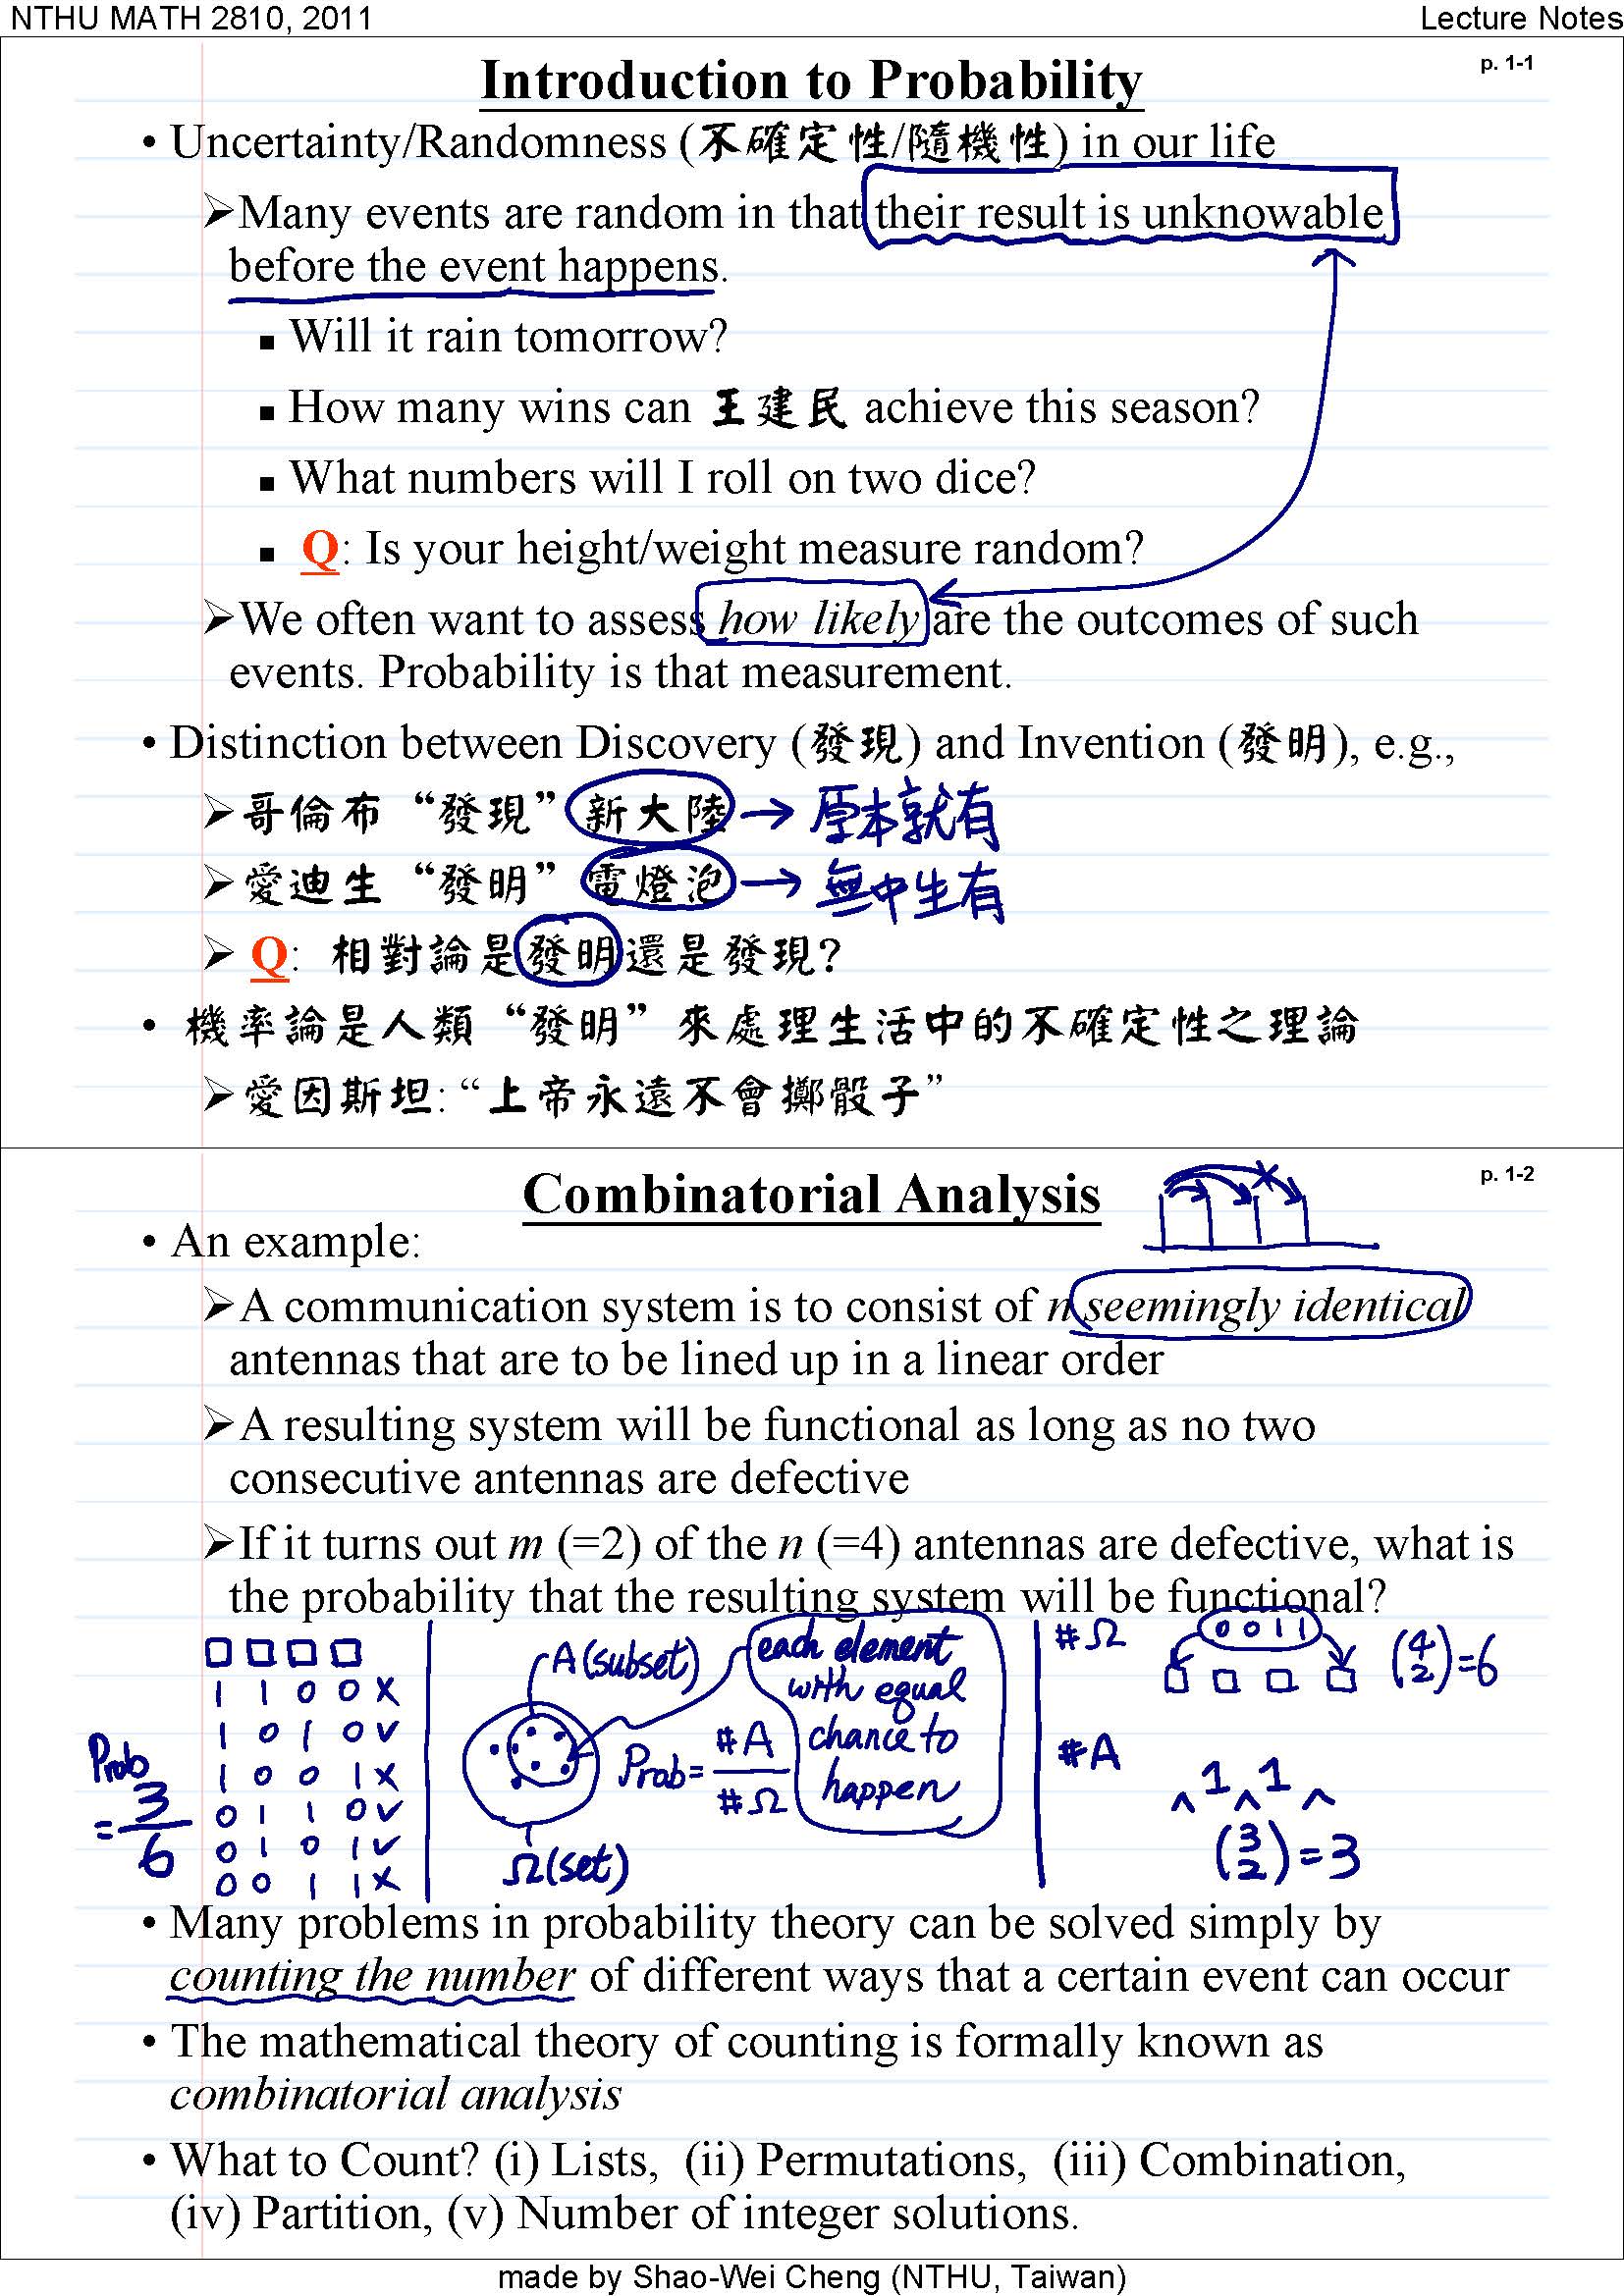 NTHU MATH 2810, 2011
Lecture Notes
p. 1-1
Introduction to Probability
• Uncertainty/Randomness (不確定性/隨機性) in our life
➢Many events are random in that their result is unknowable
before the event happens.
▪ Will it rain tomorrow?
▪ How many wins can 王建民 achieve this season?
▪ What numbers will I roll on two dice?
▪ Q: Is your height/weight measure random?
➢We often want to assess how likely are the outcomes of such
events. Probability is that measurement.
• Distinction between Discovery (發現) and Invention (發明), e.g.,
➢哥倫布 “發現” 新大陸 → 原本就有
➢愛迪生 “發明” 電燈泡 → 無中生有
➢ Q: 相對論是發明還是發現?
• 機率論是人類 “發明” 來處理生活中的不確定性之理論
➢愛因斯坦: “上帝永遠不會擲骰子”
p. 1-2
Combinatorial Analysis
• An example:
➢A communication system is to consist of n seemingly identical
antennas that are to be lined up in a linear order
➢A resulting system will be functional as long as no two
consecutive antennas are defective
➢If it turns out m (=2) of the n (=4) antennas are defective, what is
the probability that the resulting system will be functional?
1 1 0 0 x
1 0 1 0 v
1 0 0 1 x
0 1 1 0 v
0 1 0 1 v
0 0 1 1 x
Prob
= 3/6
A (subset)
Ω (set)
Prob = #A / #Ω
each element
with equal
chance to
happen
#Ω
0 0 1 1
(4 2) = 6
#A
^ 1 ^ 1 ^
(3 2) = 3
• Many problems in probability theory can be solved simply by
counting the number of different ways that a certain event can occur
• The mathematical theory of counting is formally known as
combinatorial analysis
• What to Count? (i) Lists, (ii) Permutations, (iii) Combination,
(iv) Partition, (v) Number of integer solutions.
made by Shao-Wei Cheng (NTHU, Taiwan)